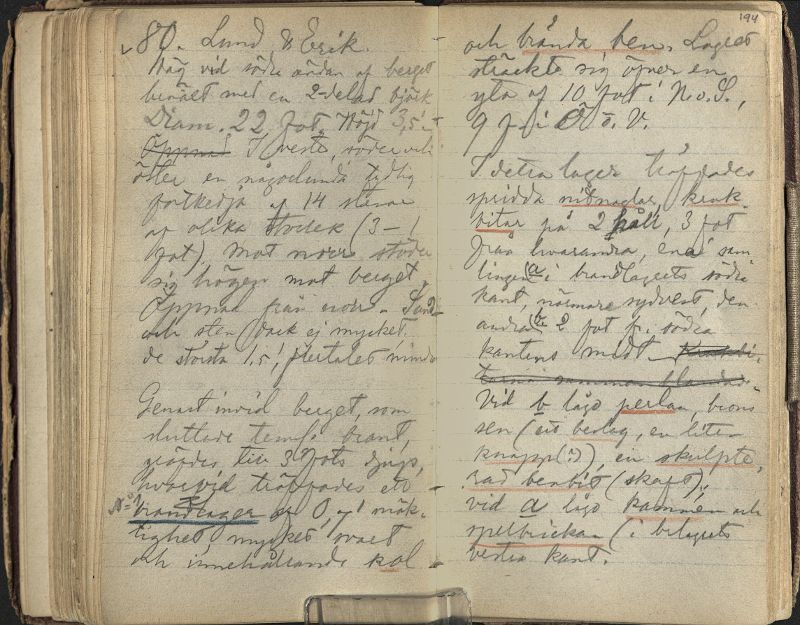 80. Lund, B Erik.
Hög vid södra ändan af berget
beväxt med en 2-delad björk
Diam. 22 fot. Höjd 3,5.
Öppnad I vester, söder och
öster en någorlunda tydlig
fotkedja af 14 stenar
af olika storlek (3-1
fot), mot norr stöder
sig högen mot berget.
Öppnad från norr. Sand
och sten dock ej mycket
de största 1,5', flertalet mindre
Genast invid berget, som
sluttade temf. brant,
gräfdes till 3 fots djup,
hvarvid träffades ett
No 1 brandlager af 0,7' mäk-
tighet mycket svart
och innehållande kol
194
och brända ben. Lagret
sträckte sig öfver en
yta af 10 fot i N.o.S.,
9 f. i Ö o. V.
I detta lager träffades
spridda nitnaglar, kruk-
bitar på 2 håll, 3 fot
från hvarandra, ena sam
lingen (a i brandlagrets södra
kant, närmare sydvest, den
andra (b 2 fot fr. södra
kantens midt. Krukbi-
tarna samman blandade
Vid b låg perlan, brons
sen (ett beslag, en liten
knapp(?)), en skulpte-
rad benbit (skaft).
vid a låg kammen och
spelbrickan (i bålagrets
vestra kant.